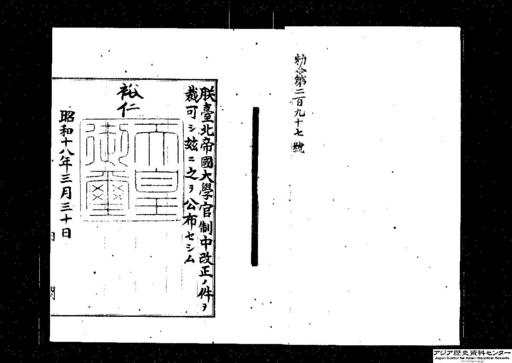 勅令第二百九十七號
朕臺北帝國大學官制中改正ノ件ヲ
裁可シ茲ニ之ヲ公布セシム
裕仁
天皇
御璽
昭和十八年三月三十日
アジア歴史資料センター
Japan Center for Asian Historical Records